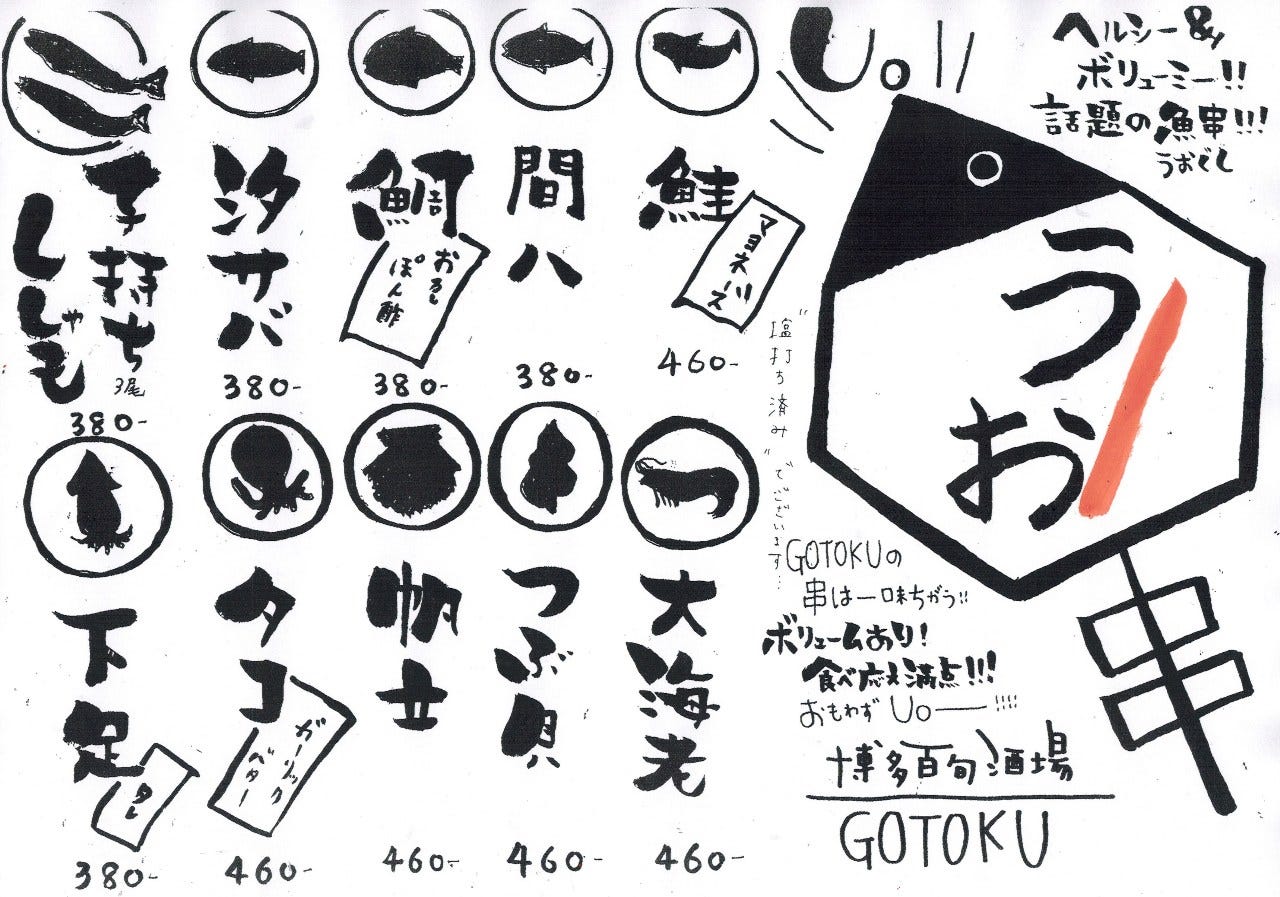 Uo!!
ヘルシー&
ボリューミー!!
話題の魚串!!!
うおぐし
うお
串
鮭
マヨネーズ
460-
間八
380-
鯛
おろし
ぽん酢
380-
汐サバ
380-
子持ち
ししゃも
3尾
380-
大海老
460-
つぶ貝
460-
帆立
460-
タコ
ガーリック
バター
460-
下足
タレ
380-
"塩打ち済み"でございます…
GOTOKUの
串は一味ちがう!!
ボリュームあり!
食べ応え満点!!!
おもわずUo——!!!!
博多百旬酒場
GOTOKU